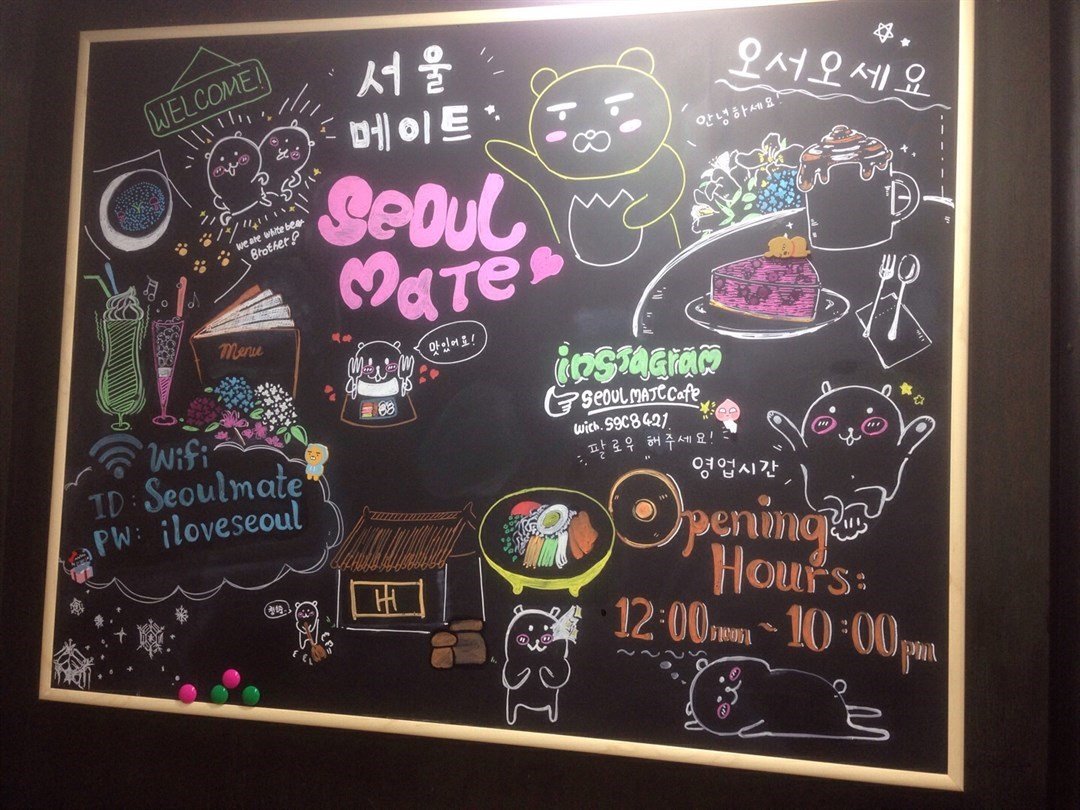 WELCOME!
서울
메이트
오서오세요
안녕하세요!
We are white bear
Brother?
Seoul
Mate
Menu
맛있어요!
instagram
SEOULMATECafe
팔로우 해주세요!
영업시간
Wifi
ID: Seoulmate
PW: iloveseoul
Opening
Hours:
12:00 noon ~ 10:00 pm